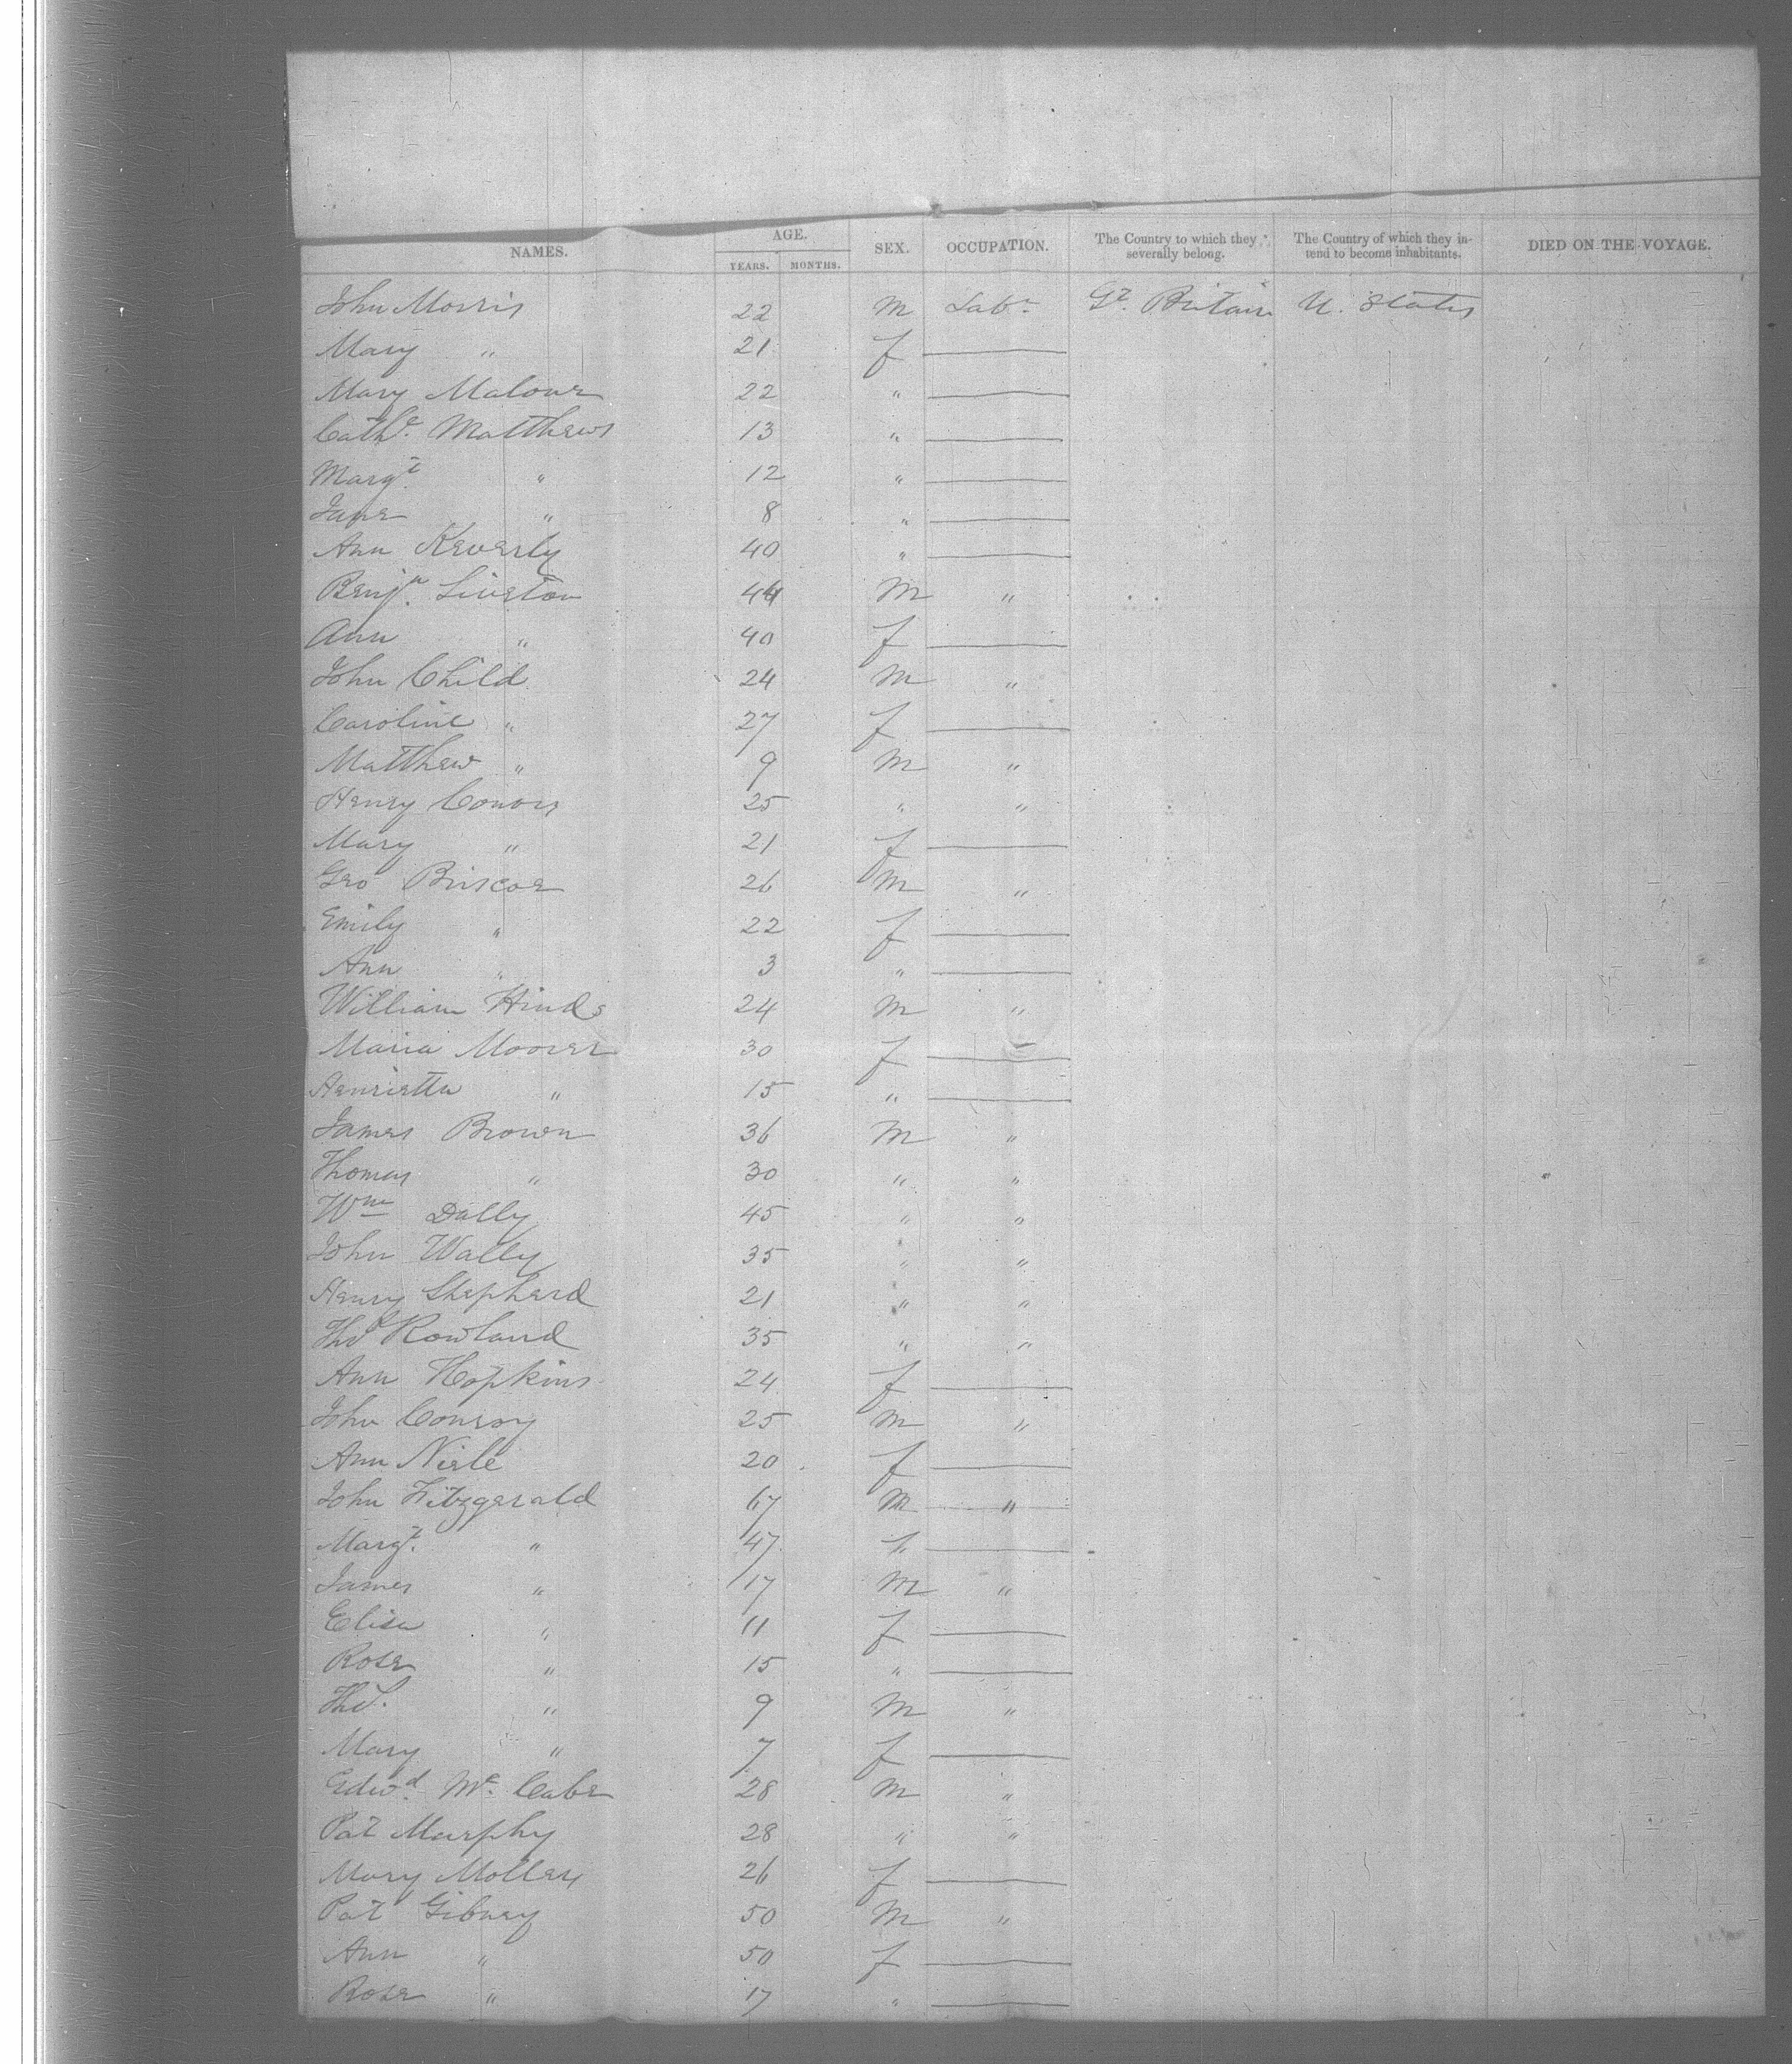 NAMES. AGE. SEX. OCCUPATION. The Country to which they severally belong. The Country of which they intend to become inhabitants. DIED ON THE VOYAGE.
YEARS. MONTHS.
John Morris 22 M Labr Gt. Britain U. States
Mary " 21 f
Mary Malone 22 "
Cathe. Matthews 13 "
Margt. " 12 "
Jane " 8 "
Ann Keverly 40 "
Benjn. Liveton 44 M "
Ann " 40 f
John Child 24 M "
Caroline " 27 f
Matthew " 9 M "
Henry Conors 25 " "
Mary " 21 f
Geo Briscoe 26 M "
Emily " 22 f
Ann " 3 "
William Hinds 24 M "
Maria Moorer 30 f
Henrietta " 15 "
James Brown 36 M "
Thomas " 30 " "
Wm Dally 45 " "
John Wally 35 " "
Henry Shepherd 21 " "
Thos Rowland 35 " "
Ann Hopkins 24 f
John Conroy 25 M "
Ann Niele 20 f
John Fitzgerald 67 M "
Margt. " 47 f
James " 17 M "
Elisa " 11 f
Rose " 15 "
Thos. " 9 M "
Mary " 7 f
Edwd. Mc. Cabe 28 M "
Pat Murphy 28 " "
Mary Molley 26 f
Pat Gibney 50 M "
Ann " 50 f
Rose " 17 "